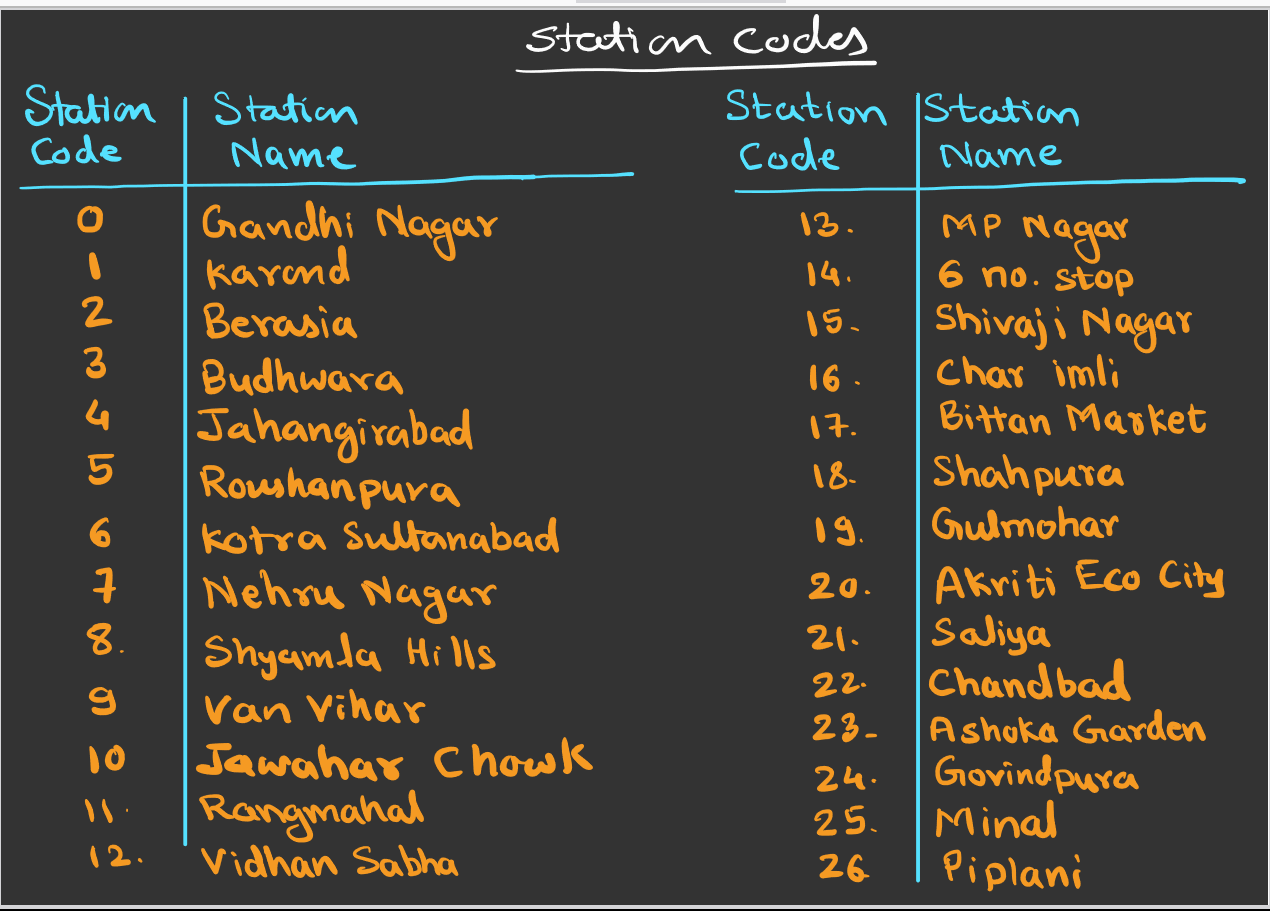 Station Codes
Station Code | Station Name
0 Gandhi Nagar
1 Karond
2 Berasia
3 Budhwara
4 Jahangirabad
5 Roushanpura
6 Kotra Sultanabad
7 Nehru Nagar
8. Shyamla Hills
9 Van Vihar
10 Jawahar Chowk
11. Rangmahal
12. Vidhan Sabha
Station Code | Station Name
13. MP Nagar
14. 6 no. stop
15. Shivaji Nagar
16. Char imli
17. Bittan Market
18. Shahpura
19. Gulmohar
20. Akriti Eco City
21. Saliya
22. Chandbad
23. Ashoka Garden
24. Govindpura
25. Minal
26 Piplani